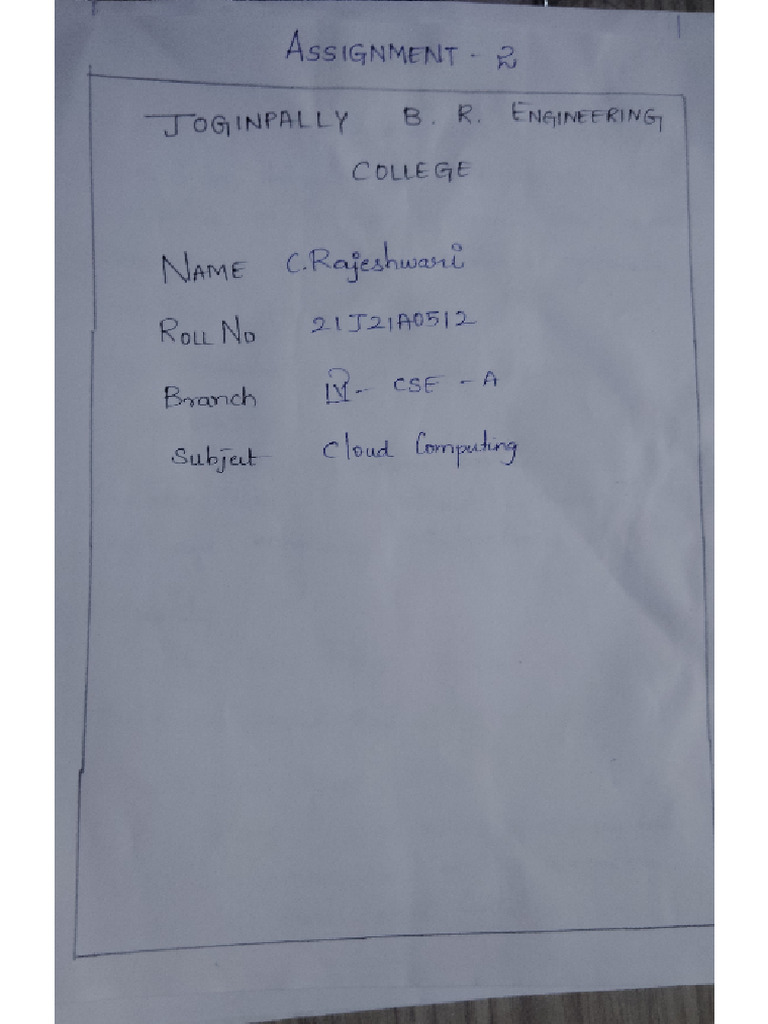 ASSIGNMENT - 2
JOGINPALLY B. R. ENGINEERING
COLLEGE
NAME C.Rajeshwari
ROLL NO 21J21A0512
Branch IV - CSE - A
Subject Cloud Computing